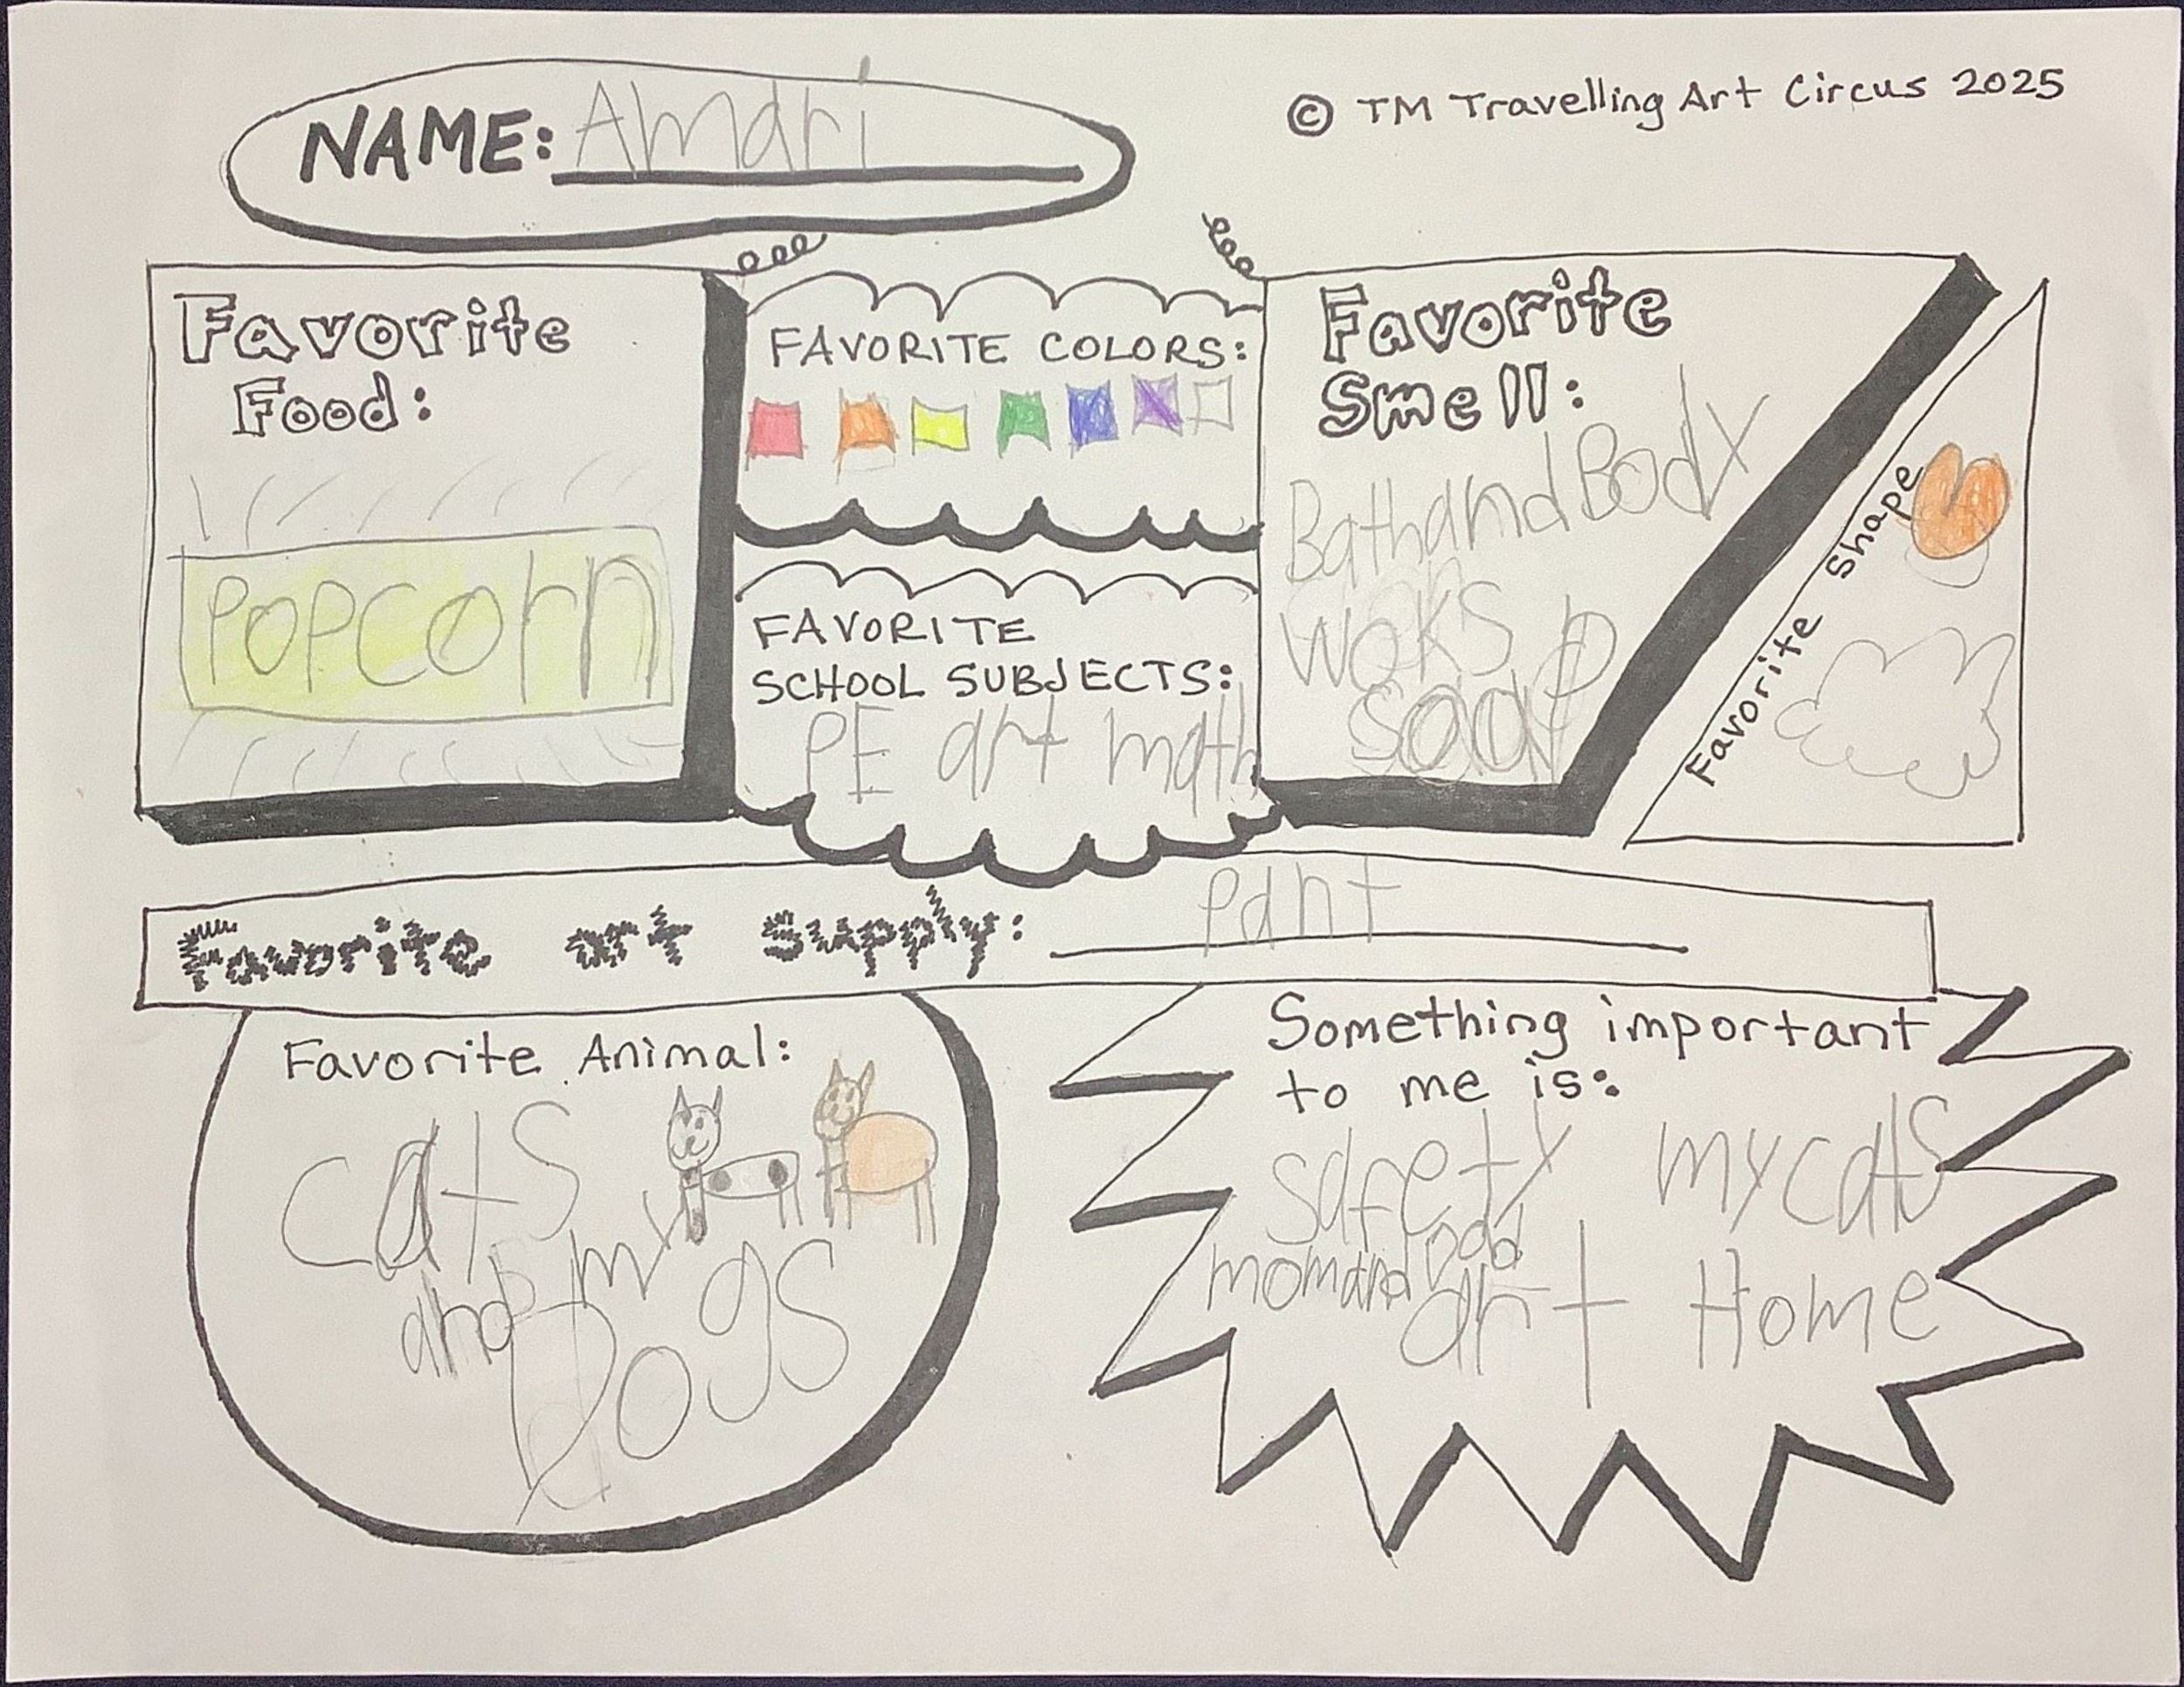 NAME: Amari
© TM Travelling Art Circus 2025
Favorite
Food:
POPCorn
FAVORITE COLORS:
FAVORITE
SCHOOL SUBJECTS:
PE art math
Favorite
Smell:
BathandBody
woks
soap
Favorite Shape
Favorite art Supply: Pant
Favorite Animal:
cats
and my
Dogs
Something important
to me is:
safety my cats
momand Dad
art Home